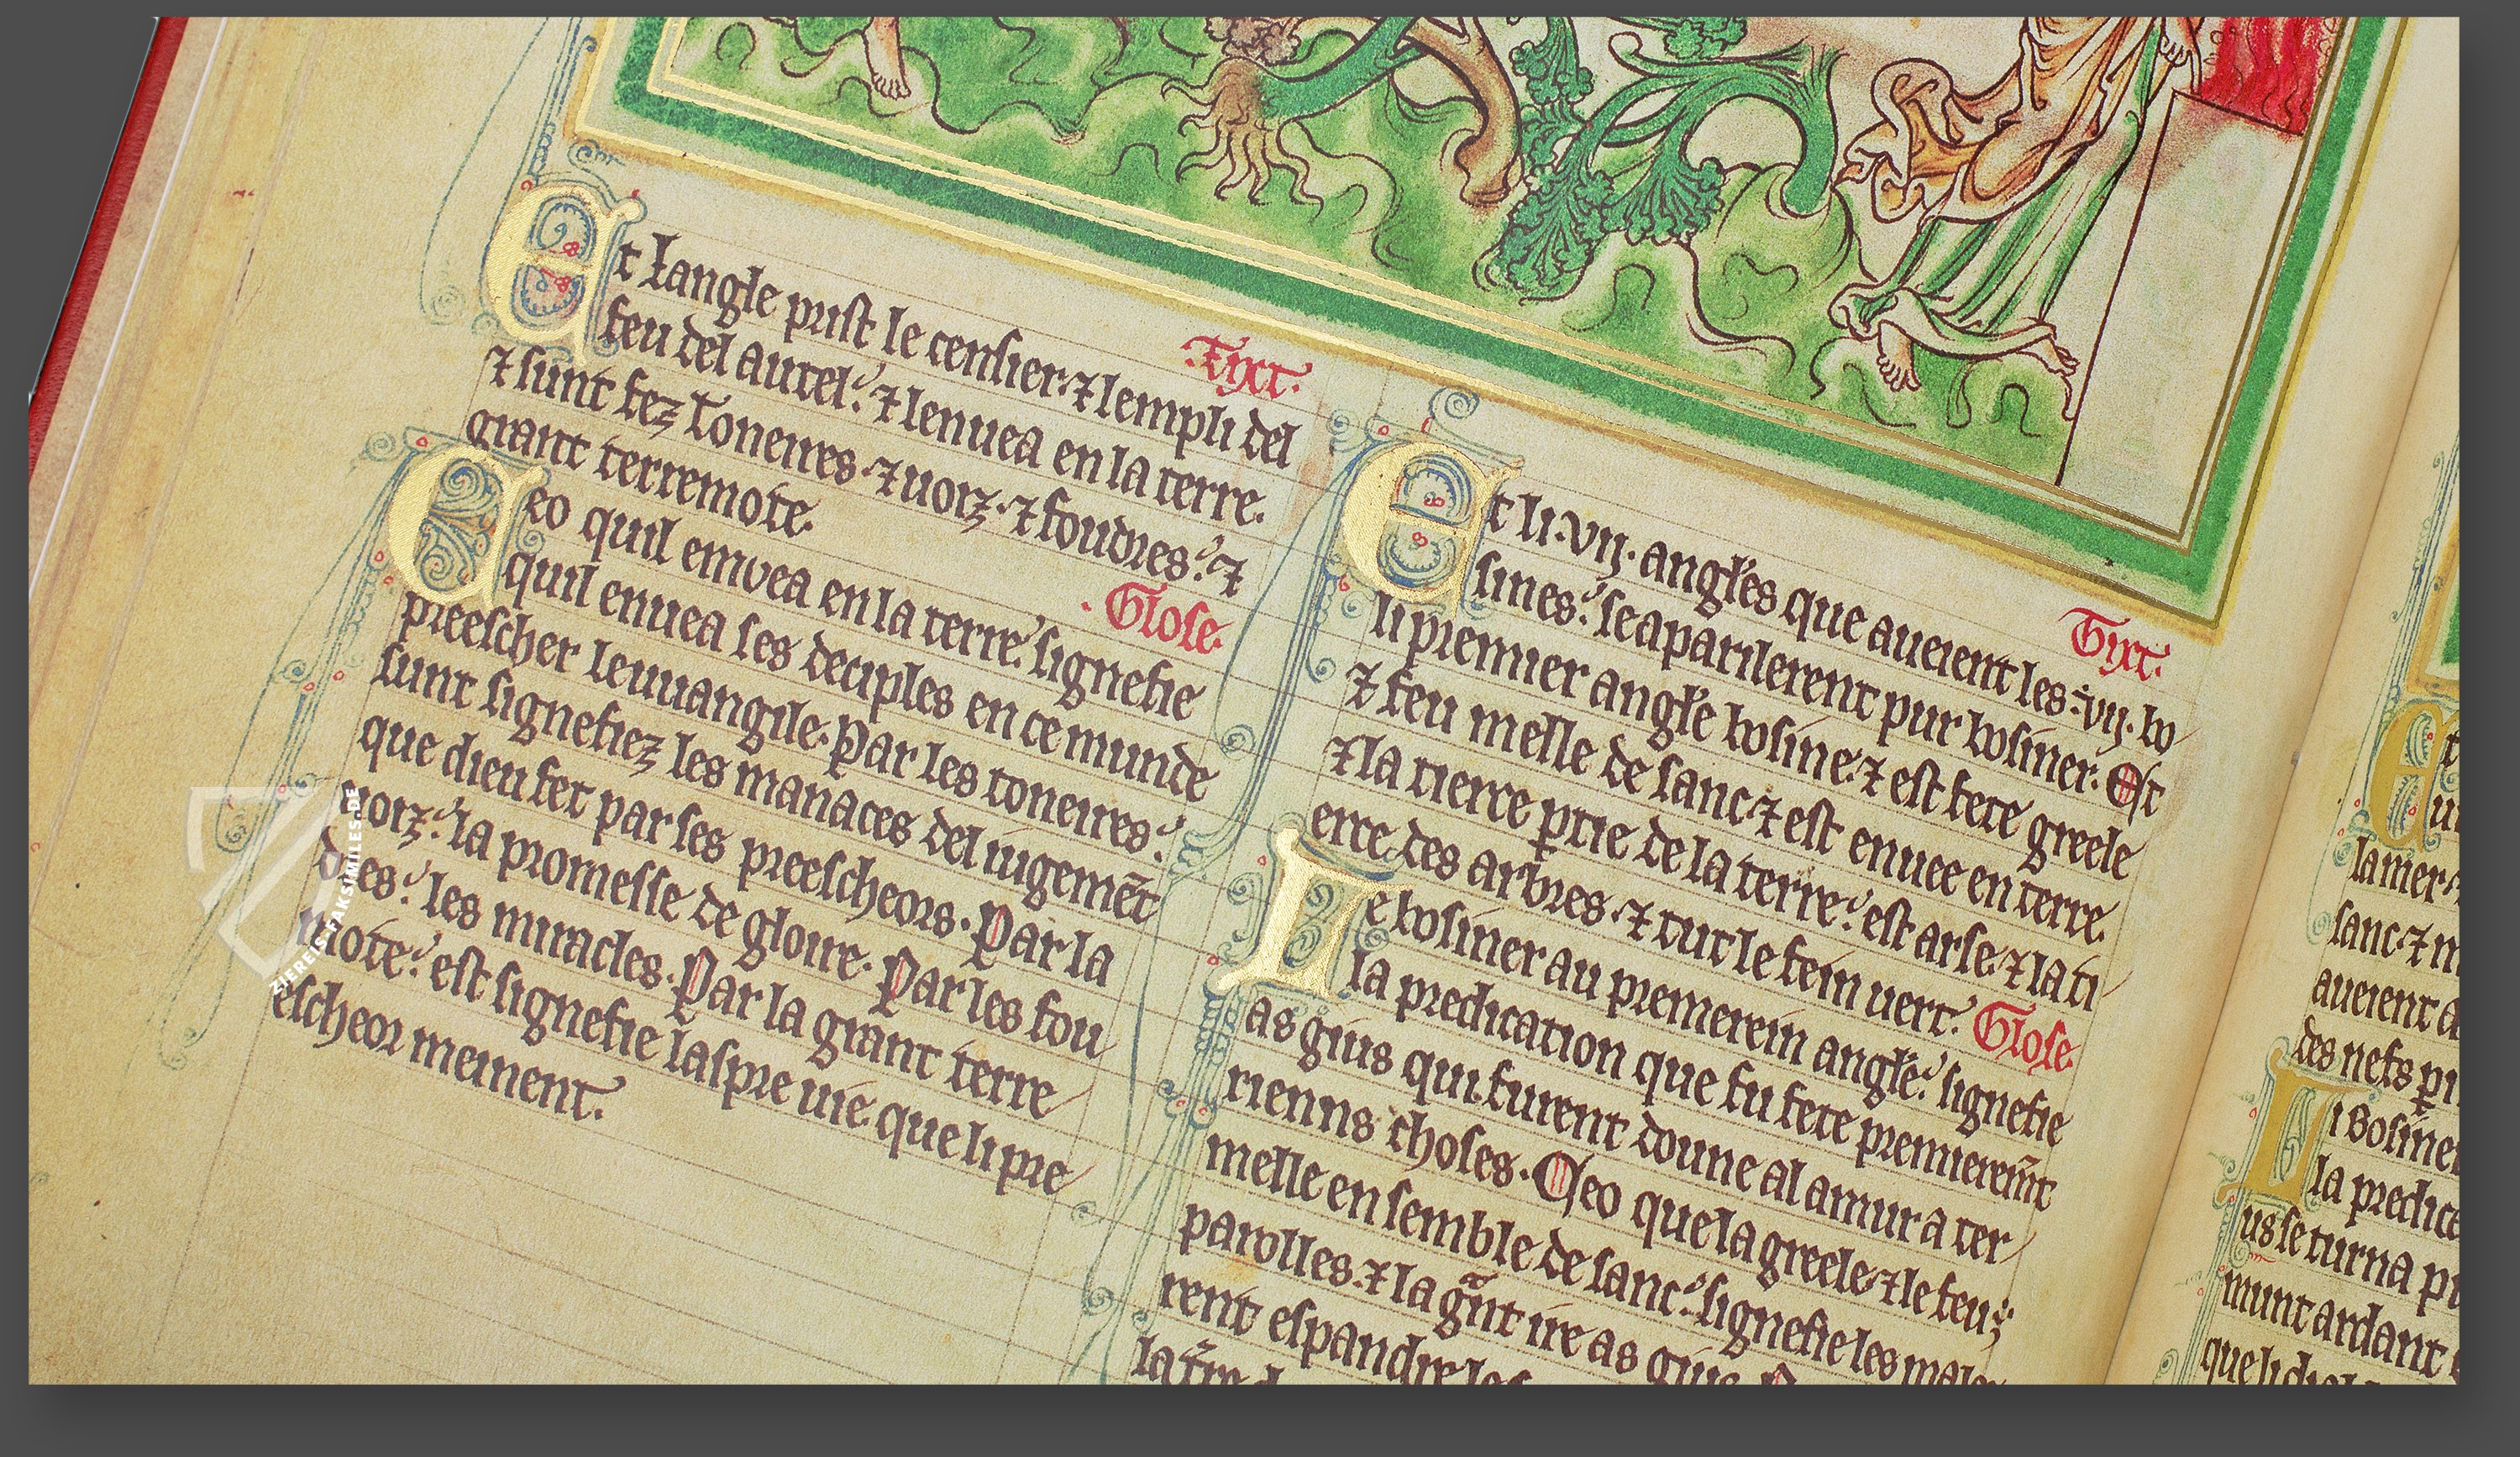 Et langle prist le censier. ⁊ lempli del
Tixt.
feu del autel. ⁊ lenuea en la terre.
⁊ sunt fez toneirres. ⁊ uoiz. ⁊ foudres. ⁊
grant terremote.
Glose.
Ceo quil envea en la terre. signefie
quil enuea ses deciples en ce munde
preescher leuuangile. Par les toneirres.
sunt signefiez les manaces del iugemẽt
que dieu fet par ses preescheors. Par la
uoiz. la promesse de gloire. Par les fou
dres. les miracles. Par la grant terre
mote. est signefie laspre uie que li pre
escheor meinent.
Tixt.
Et li .vij. angles que aueient les .vij. bo
sines. se aparilerent pur bosiner. Et
li premier angle bosine. ⁊ est fete greele
⁊ feu melle de sanc. ⁊ est enuee en terre.
⁊ la tierce ꝑtie de la terre. est arse. ⁊ la ti
erce des arbres. ⁊ tut le fein uert. Glose.
Le bosiner au premerein angle. signefie
la predication que fu fete premieremt
as gius qui furent doune al amur a ter
riennes choses. Ceo que la greele ⁊ le feu
melle en semble de sanc. signefie les males
parolles. ⁊ la grant ire as gius
rent espandre les
la
la mer
sanc. ⁊ m
aueient a
des nefs
i bosine
la predica
us se turna
munt ardant
que li
ZIEREIS-FAKSIMILES.DE